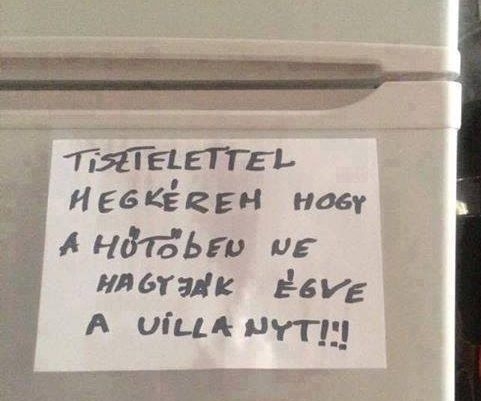 TISZTELETTEL
MEGKÉREM HOGY
A HŰTŐBEN NE
HAGYJÁK ÉGVE
A VILLANYT!!!